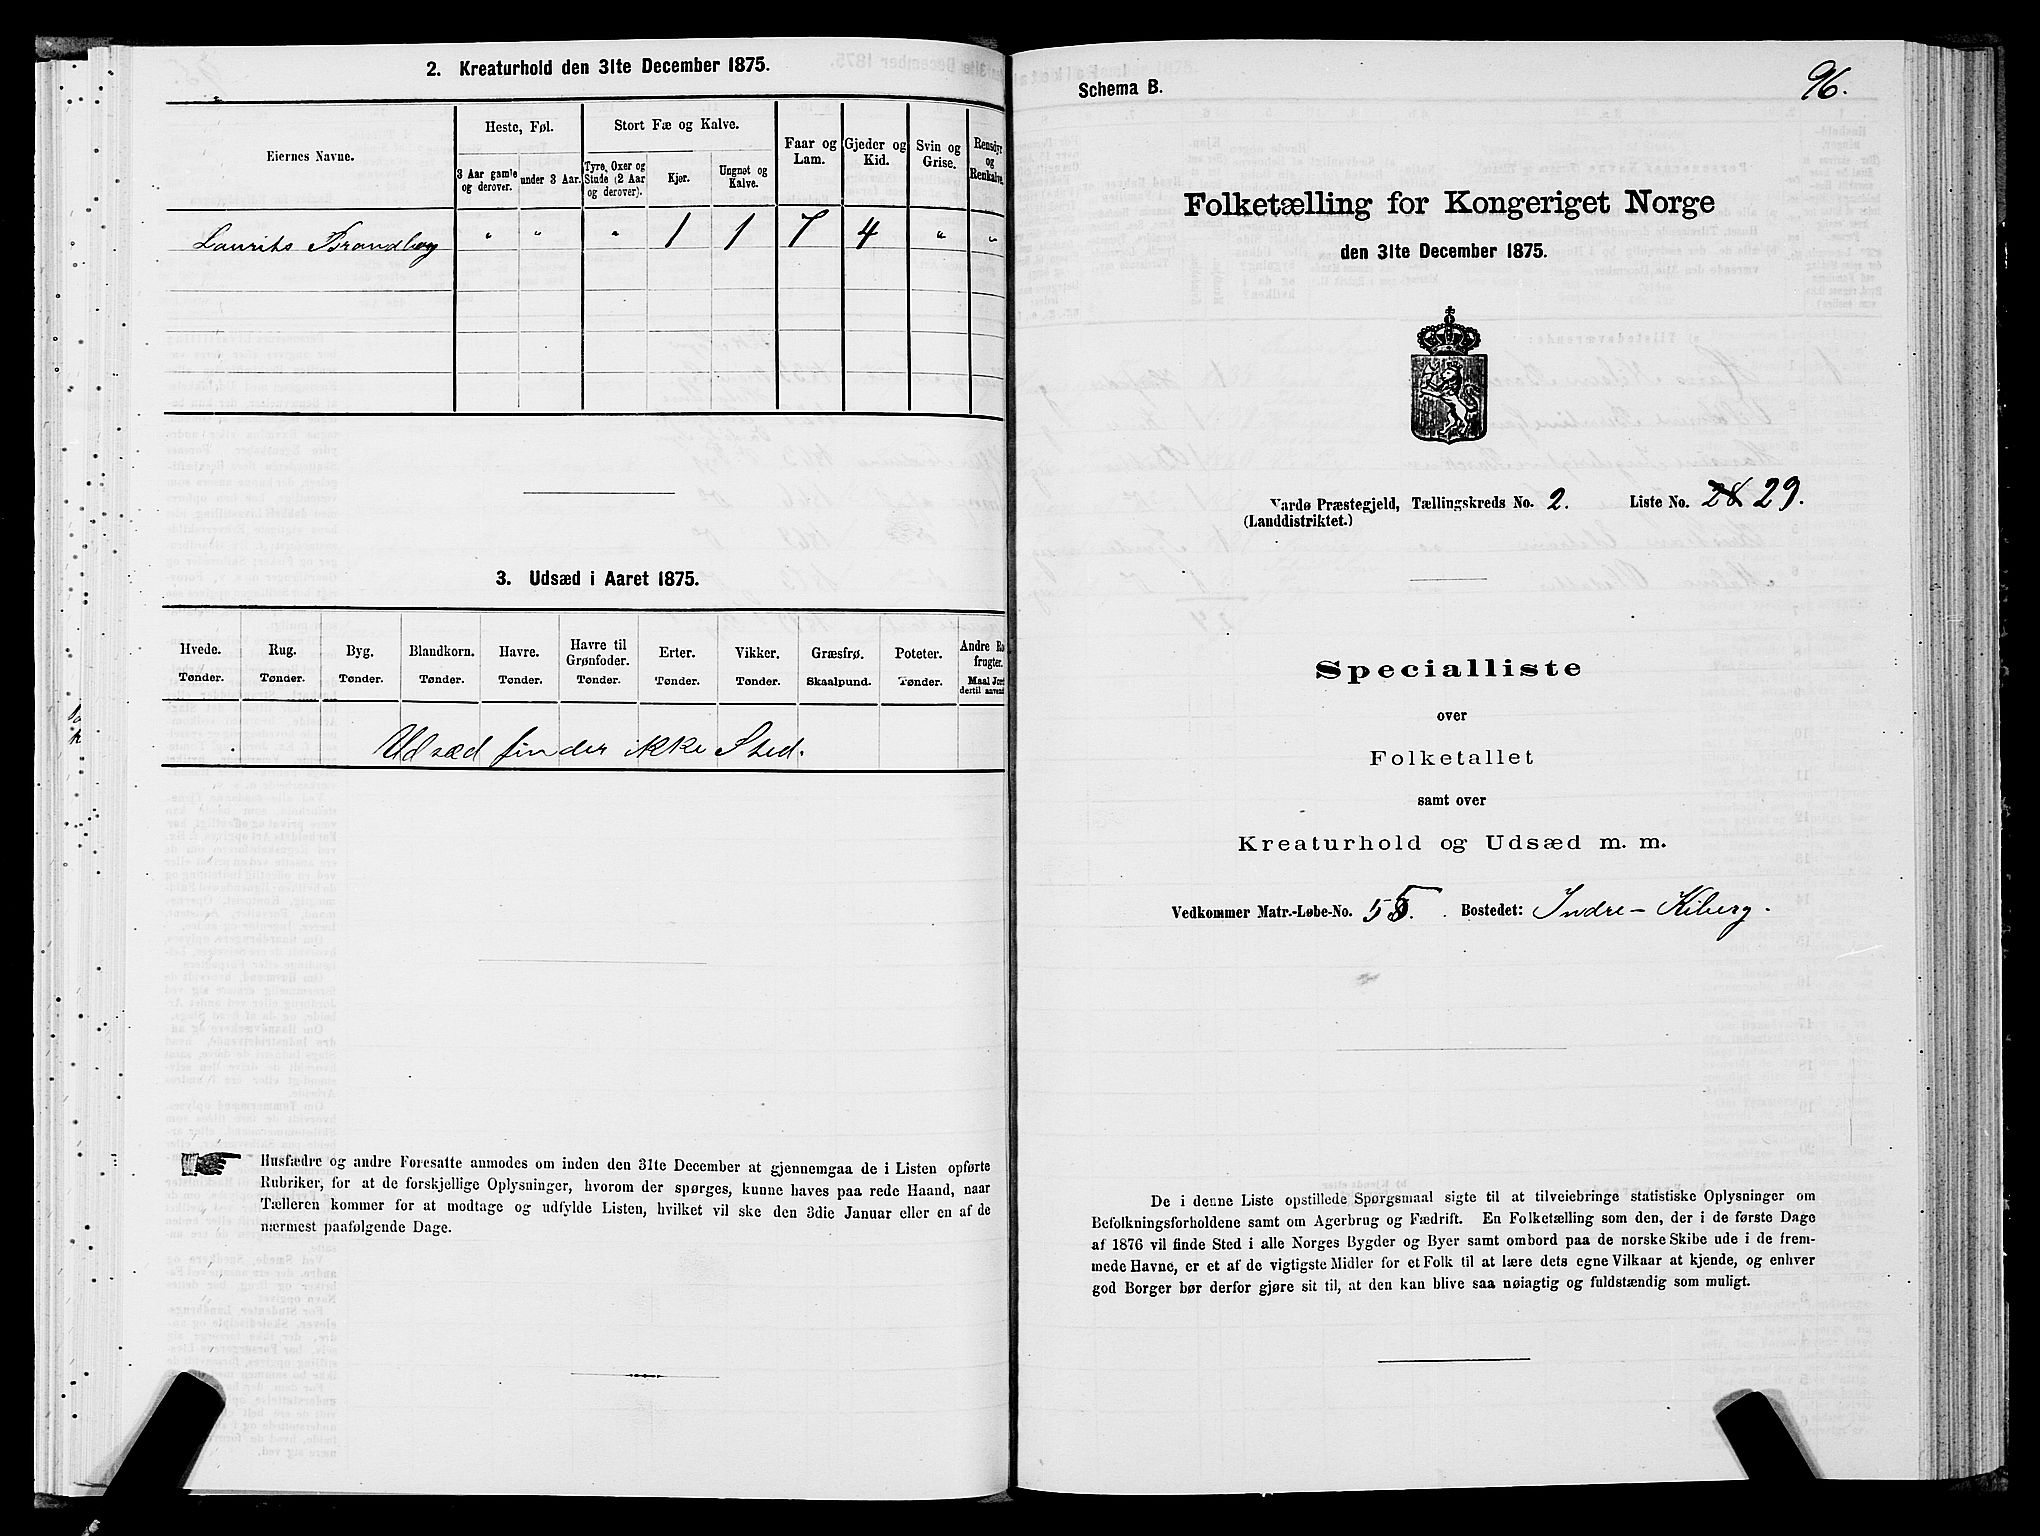 2. Kreaturhold den 31te December 1875.
Eiernes Navne.
Heste, Føl.
Stort Fæ og Kalve.
Faar og Lam.
Gjeder og Kid.
Svin og Grise.
Rensdyr og Renkalve.
3 Aar gamle og derover.
under 3 Aar.
Tyre, Oxer og Stude (2 Aar og derover).
Kjør.
Ungnøt og Kalve.
Laurits Brandberg " " " 1 1 7 4 " "
3. Udsæd i Aaret 1875.
Hvede. Rug. Byg. Blandkorn. Havre. Havre til Grønfoder. Erter. Vikker. Græsfrø. Poteter. Andre Ro
frugter.
Tønder. Tønder. Tønder. Tønder. Tønder. Tønder. Tønder. Tønder. Skaalpund. Tønder. Maal Jord
dertil anvend
Udsæd finder ikke Sted.
Husfædre og andre Foresatte anmodes om inden den 31te December at gjennemgaa de i Listen opførte
Rubriker, for at de forskjellige Oplysninger, hvorom der spørges, kunne haves paa rede Haand, naar
Tælleren kommer for at modtage og udfylde Listen, hvilket vil ske den 3die Januar eller en af de
nærmest paafølgende Dage.
96.
Schema B.
Folketælling for Kongeriget Norge
den 31te December 1875.
Vardø Præstegjeld, Tællingskreds No. 2. Liste No. 28 29.
(Landdistriktet.)
Specialliste
over
Folketallet
samt over
Kreaturhold og Udsæd m. m.
Vedkommer Matr.-Løbe-No. 55. Bostedet: Indre-Kiberg.
De i denne Liste opstillede Spørgsmaal sigte til at tilveiebringe statistiske Oplysninger om
Befolkningsforholdene samt om Agerbrug og Fædrift. En Folketælling som den, der i de første Dage
af 1876 vil finde Sted i alle Norges Bygder og Byer samt ombord paa de norske Skibe ude i de frem-
mede Havne, er et af de vigtigste Midler for et Folk til at lære dets egne Vilkaar at kjende, og enhver
god Borger bør derfor gjøre sit til, at den kan blive saa nøiagtig og fuldstændig som muligt.